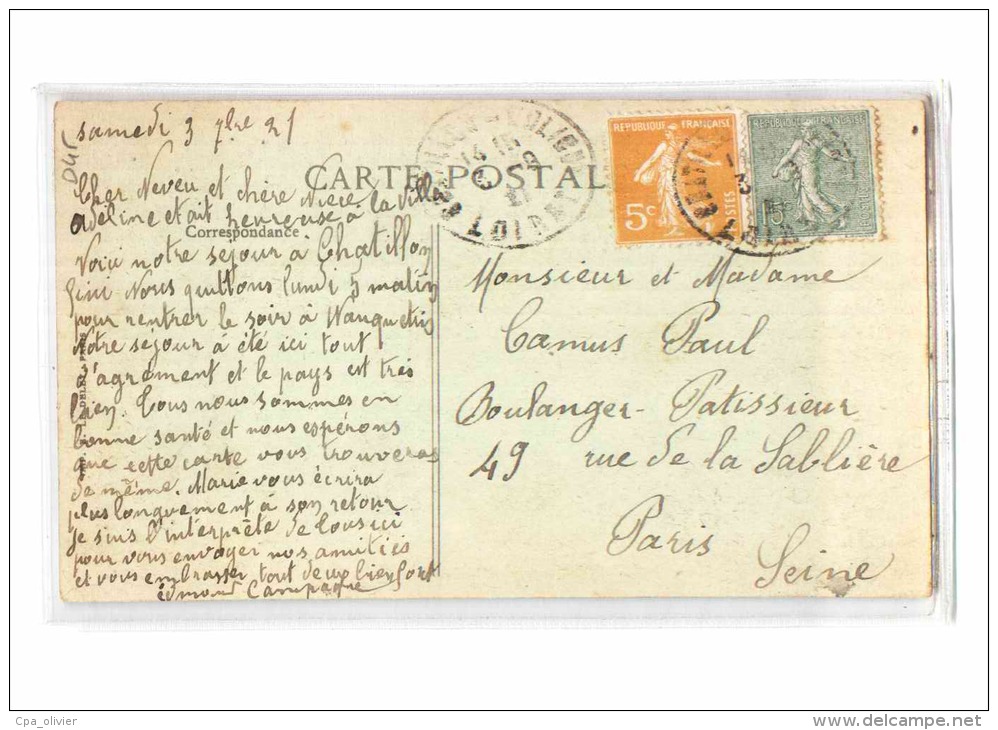 samedi 3 7bre 21
Cher Neveu et chère Nièce
adeline était heureuse à la ville
Voici notre séjour à Chatillon
fini Nous quittons lundi 5 matin
pour rentrer le soir à Wanquetin
Notre séjour a été ici tout
d'agrément et le pays est très
bien. Tous nous sommes en
bonne santé et nous espérons
que cette carte vous trouveras
de même. Marie vous écrira
plus longuement à son retour
je suis l'interprète de tous ici
pour vous envoyer nos amitiés
et vous embrasser tout deux bien fort
Edmond Campagne
CARTE POSTALE
Correspondance
CHATILLON-COLIGNY
LOIRET
REPUBLIQUE FRANÇAISE
5c
POSTES
REPUBLIQUE FRANÇAISE
15c
POSTES
Monsieur et Madame
Camus Paul
Boulanger-Patissier
49 rue de la Sablière
Paris
Seine
Cpa_olivier
http://www.delcampe.net